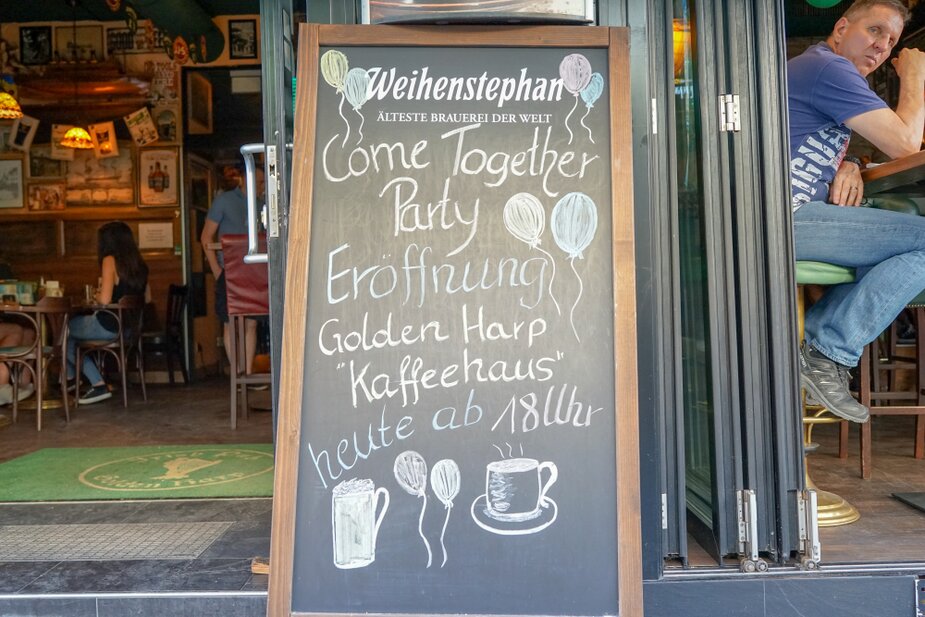 Weihenstephan
ÄLTESTE BRAUEREI DER WELT
Come Together
Party
Eröffnung
Golden Harp
"Kaffeehaus"
heute ab 18 Uhr